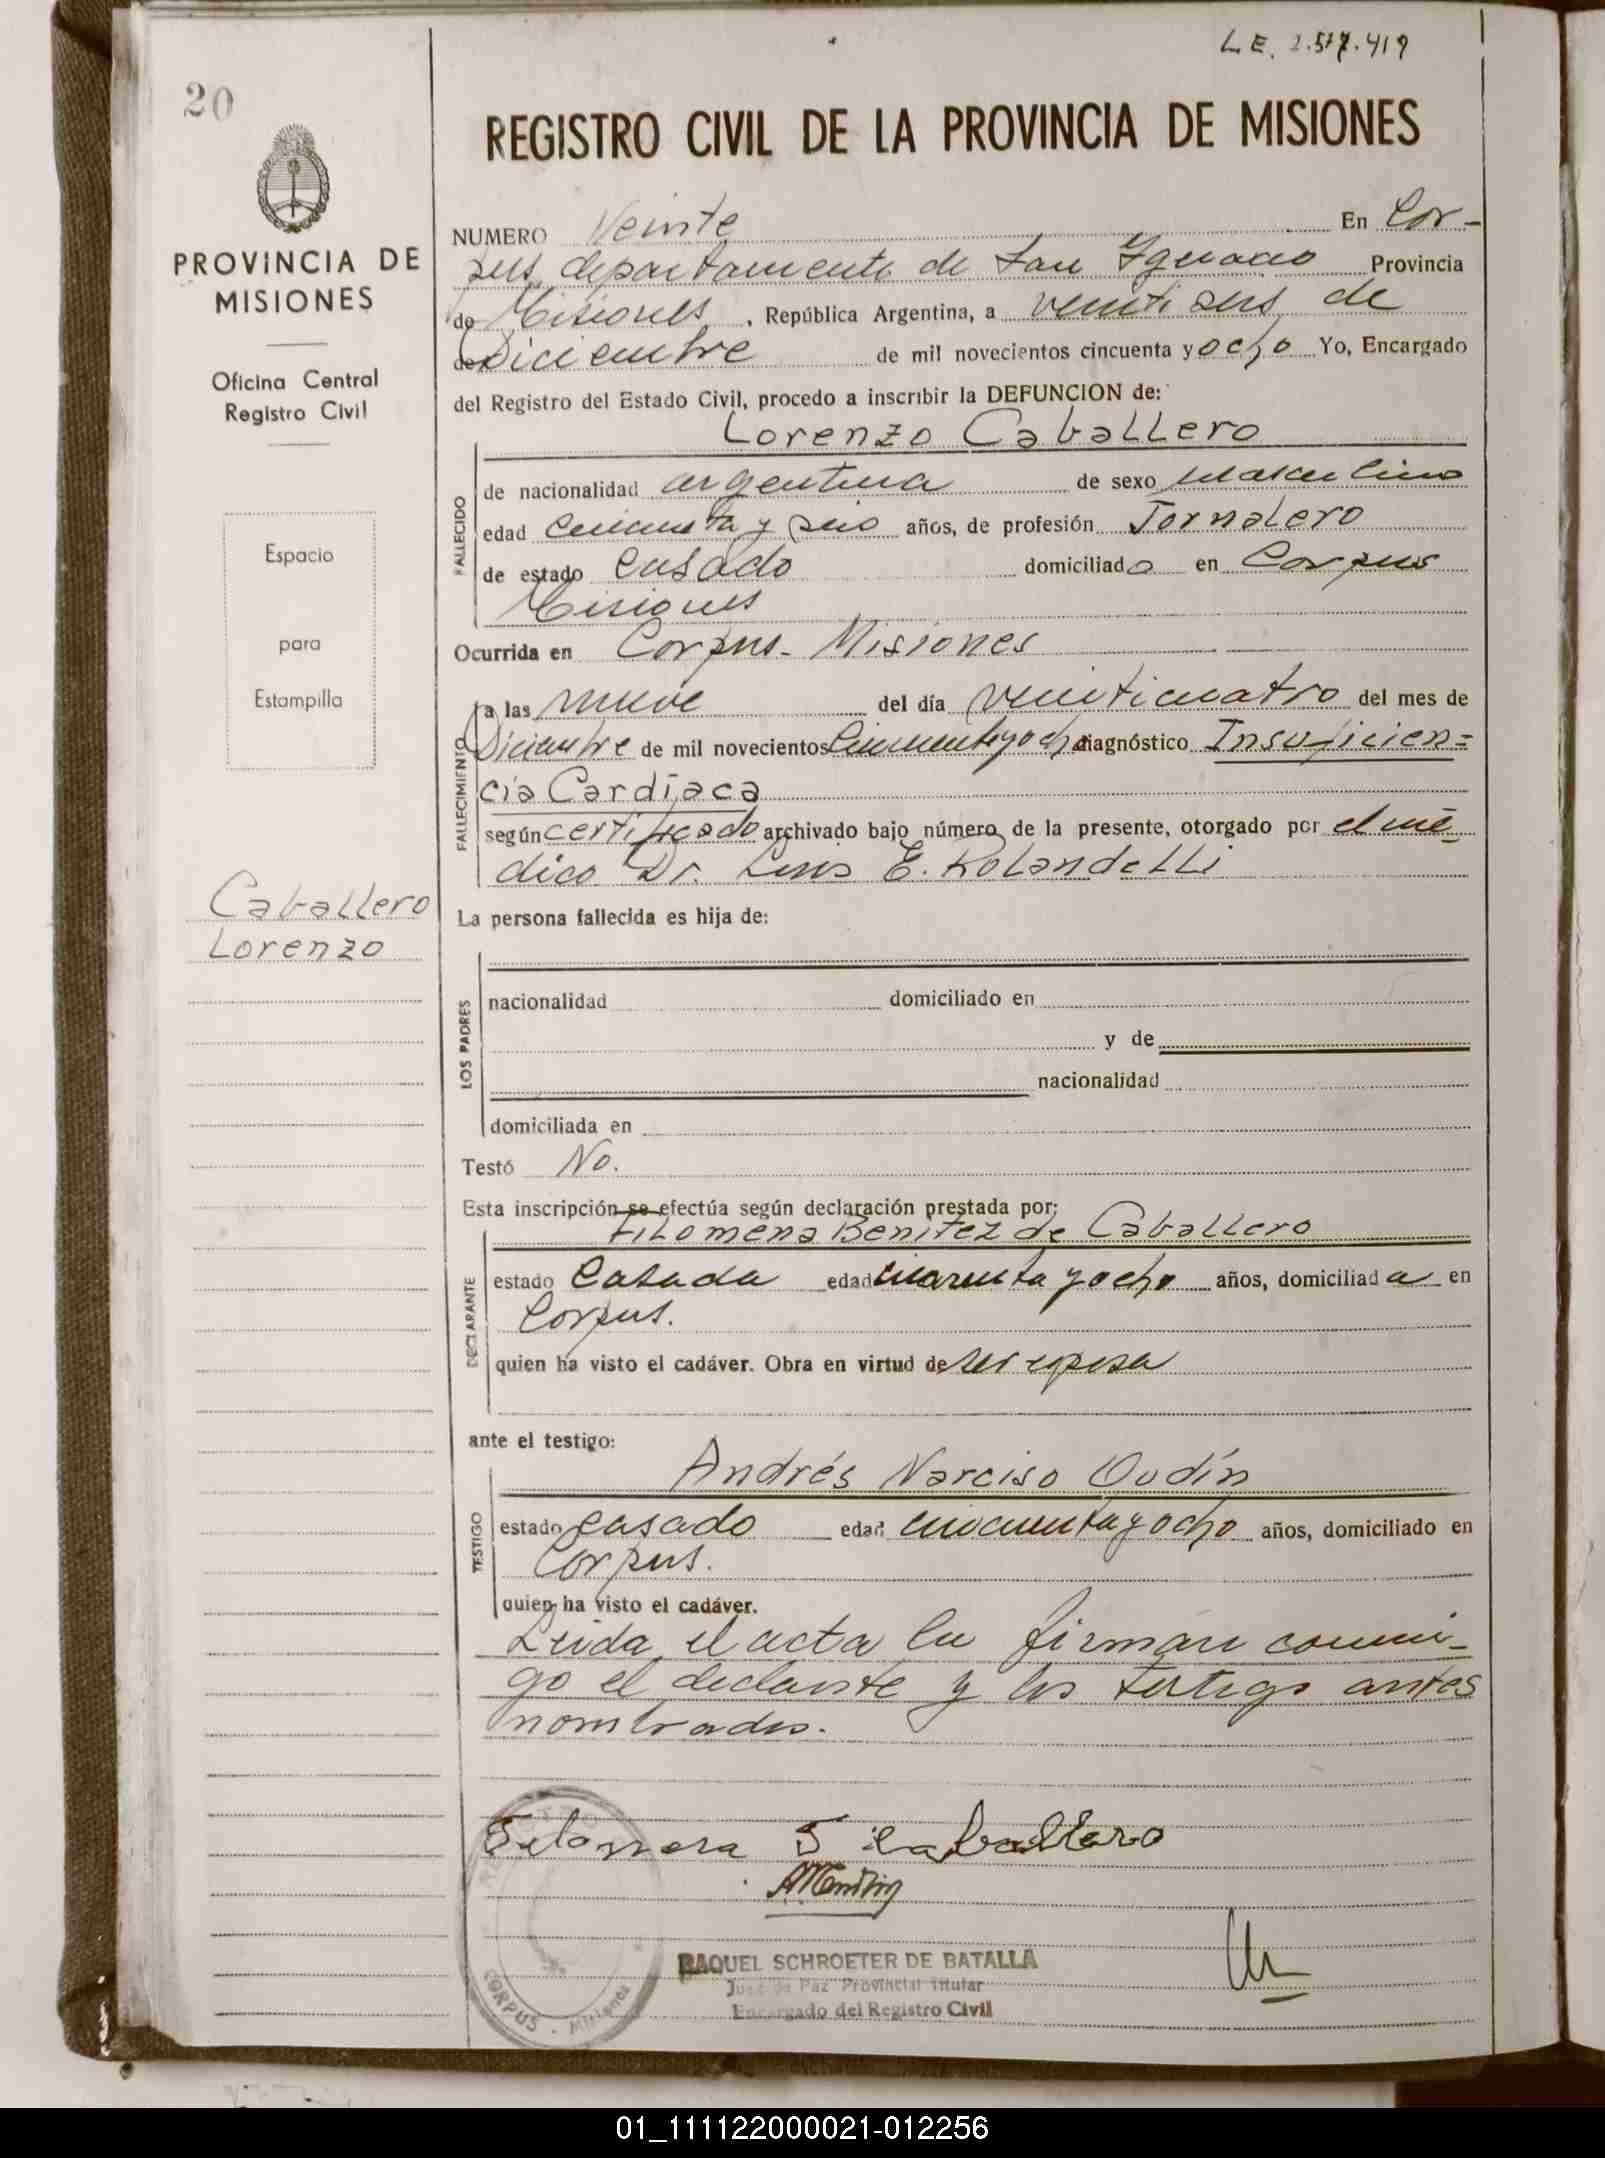 L.E. 2.517.419
20
REGISTRO CIVIL DE LA PROVINCIA DE MISIONES
PROVINCIA DE
MISIONES
Oficina Central
Registro Civil
Espacio
para
Estampilla
Caballero
Lorenzo
NUMERO Veinte En Cor-
pus, departamento de San Ignacio Provincia
de Misiones, República Argentina, a veinti seis de
de Diciembre de mil novecientos cincuenta y ocho Yo, Encargado
del Registro del Estado Civil, procedo a inscribir la DEFUNCION de:
Lorenzo Caballero
FALLECIDO
de nacionalidad argentina de sexo masculino
edad cincuenta y seis años, de profesión Jornalero
de estado casado domiciliado en Corpus
Misiones
Ocurrida en Corpus- Misiones
FALLECIMIENTO
a las nueve del día veinticuatro del mes de
Diciembre de mil novecientos cincuenta y ocho diagnóstico Insuficien=
cia Cardíaca
según certificado archivado bajo número de la presente, otorgado por el mé-
dico Dr. Luis E. Rolandelli
La persona fallecida es hija de:
LOS PADRES
nacionalidad domiciliado en
y de
nacionalidad
domiciliada en
Testó No.
Esta inscripción se efectúa según declaración prestada por:
Filomena Benítez de Caballero
DECLARANTE
estado Casada edad cuarenta y ocho años, domiciliada en
Corpus.
quien ha visto el cadáver. Obra en virtud de ser esposa
ante el testigo:
Andrés Narciso Oudín
TESTIGO
estado casado edad cincuenta y ocho años, domiciliado en
Corpus.
quien ha visto el cadáver.
Leida el acta la firman conmi-
go el declante y los testigo antes
nombrados.
Filomena Caballero
RAQUEL SCHROETER DE BATALLA
Juez de Paz Provincial Titular
Encargado del Registro Civil
CORPUS - Misiones
01_111122000021-012256